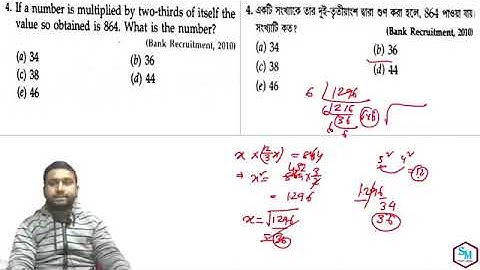 4. If a number is multiplied by two-thirds of itself the
value so obtained is 864. What is the number?
(Bank Recruitment, 2010)
(a) 34 (b) 36
(c) 38 (d) 44
(e) 46
4. একটি সংখ্যাকে তার দুই-তৃতীয়াংশ দ্বারা গুণ করা হলে, 864 পাওয়া যায়।
সংখ্যাটি কত?
(Bank Recruitment, 2010)
(a) 34 (b) 36
(c) 38 (d) 44
(e) 46
6 1296
6 216
6 36
6
x × (2/3 x) = 864
⇒ x² =
= 1296
x = √1296
= 36
5² 4²
1296
34
36
SM